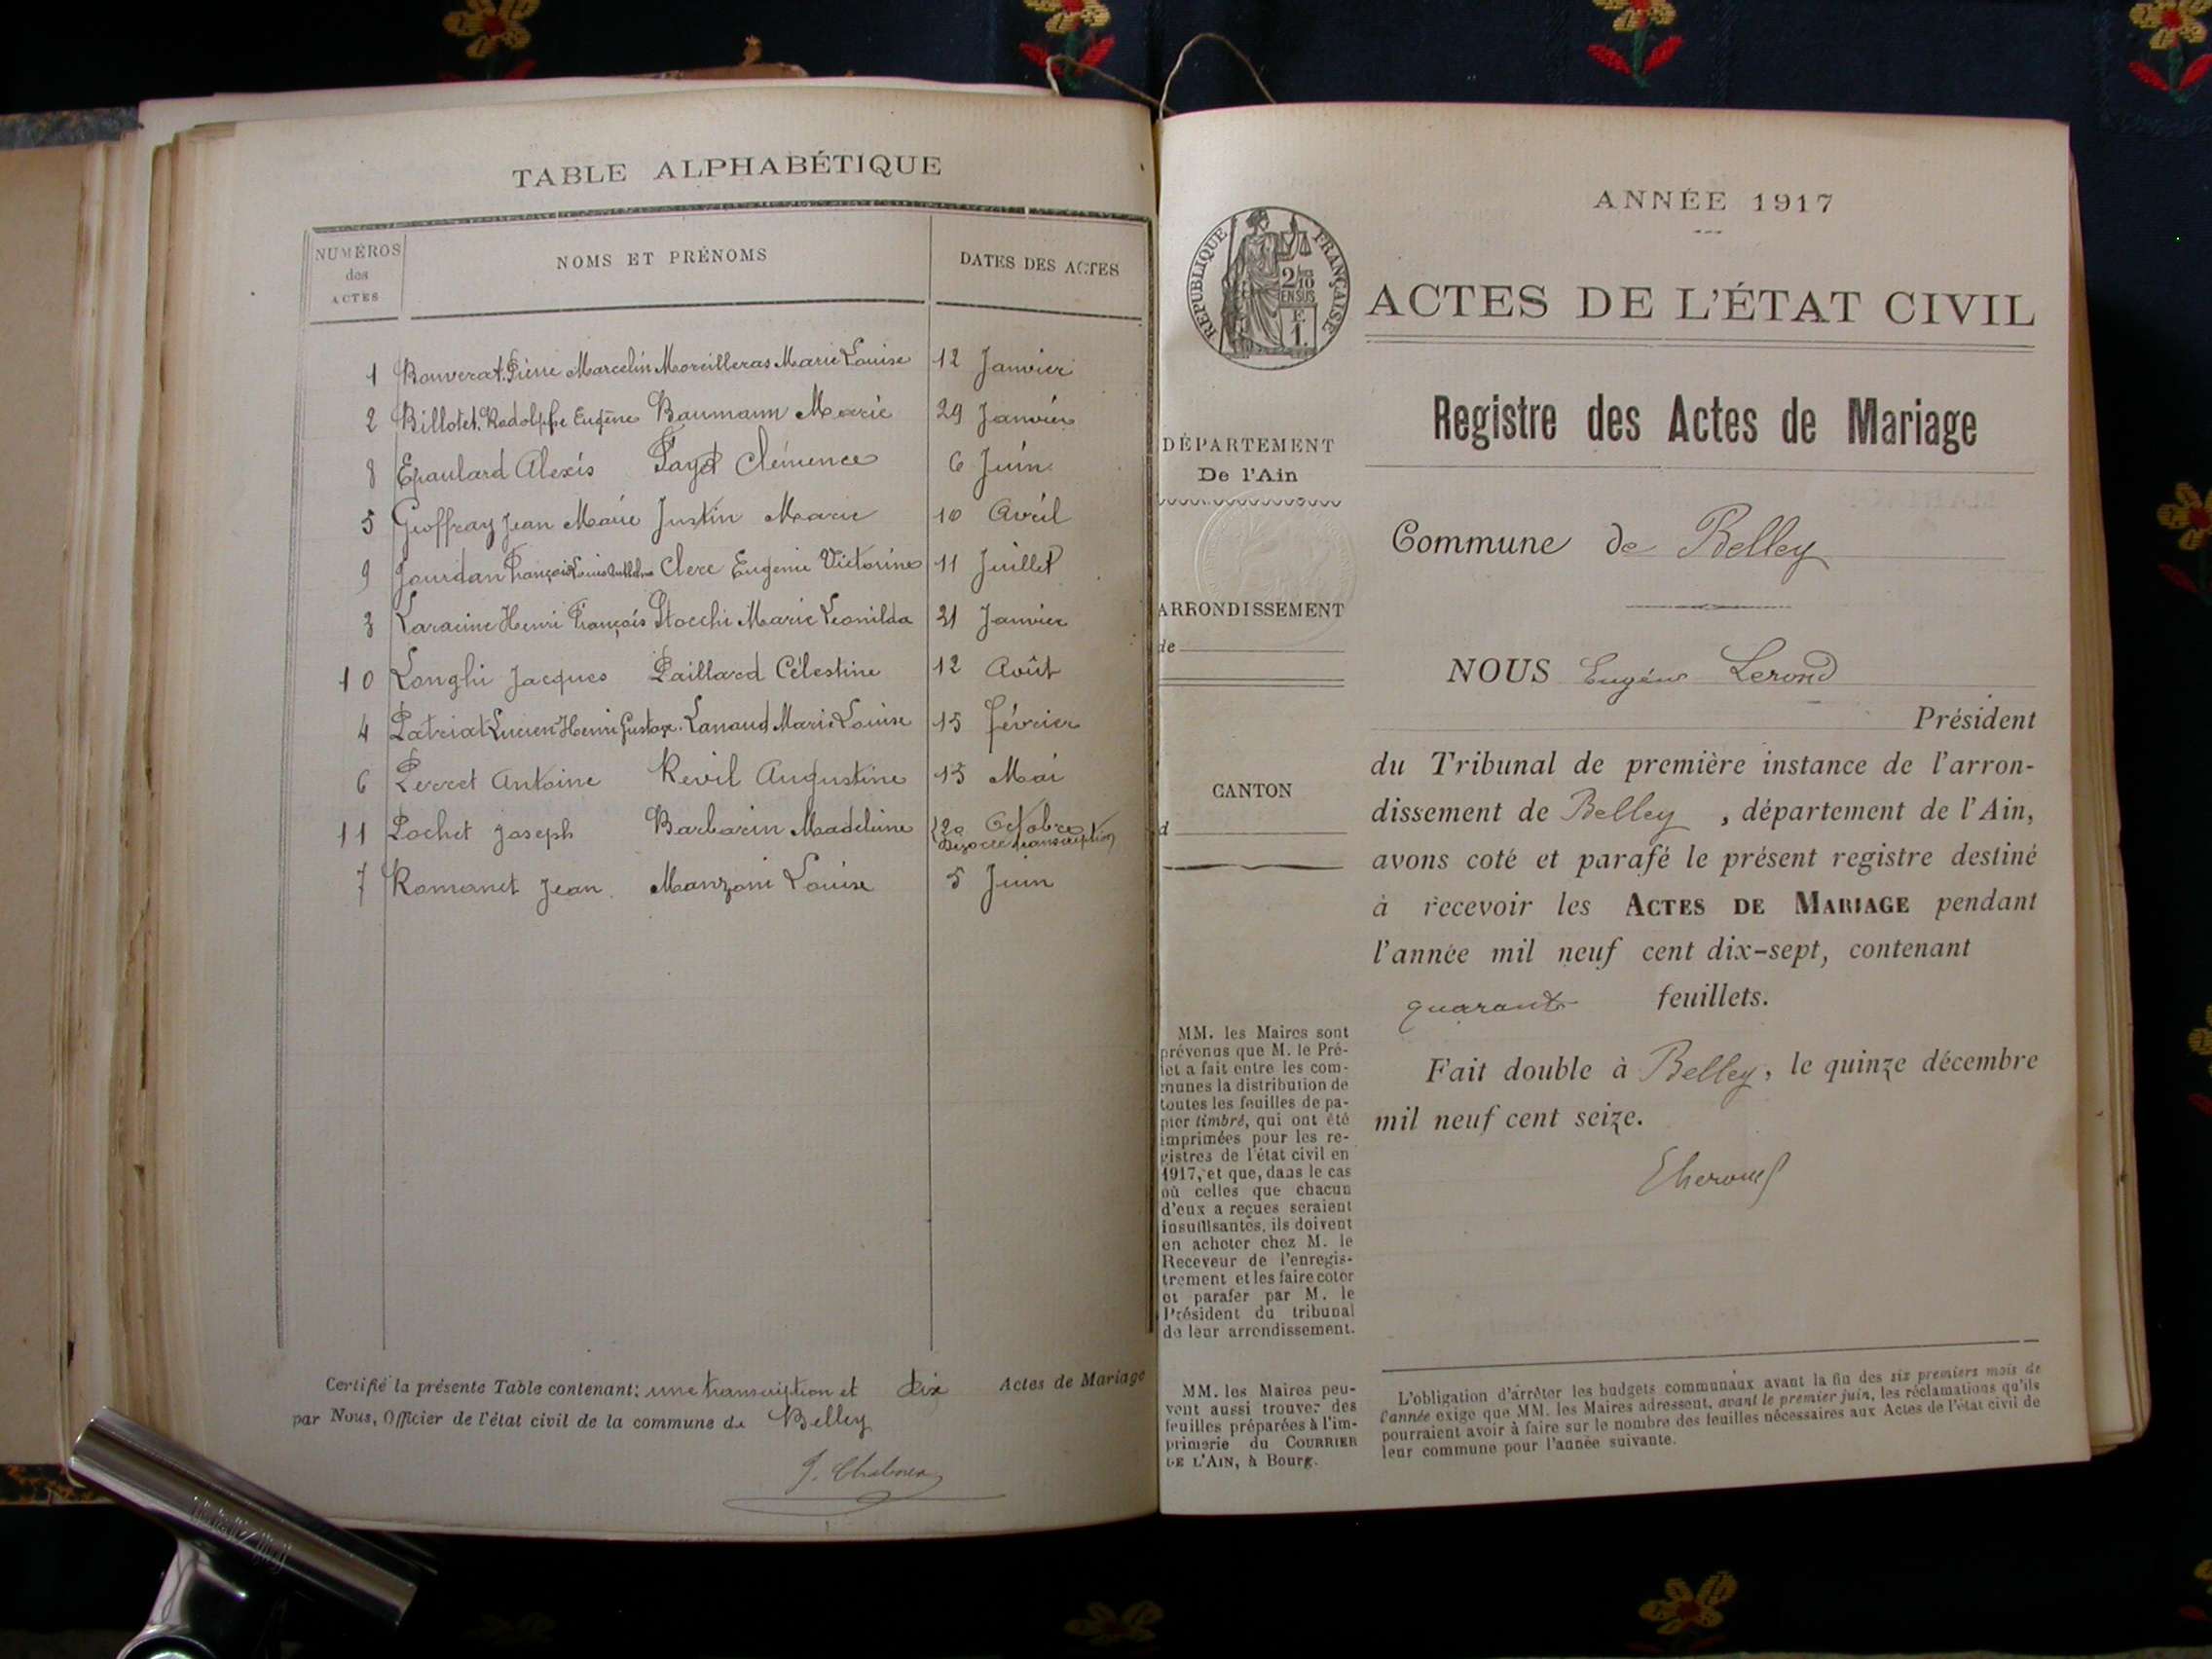 TABLE ALPHABÉTIQUE
NUMÉROS
des
ACTES
NOMS ET PRÉNOMS
DATES DES ACTES
1 Bouverat Pierre Marcelin Moreilleras Marie Louise 12 Janvier
2 Billotet Rodolphe Eugène Baumann Marie 29 Janvier
8 Epaulard Alexis Payet Clémence 6 Juin
5 Geoffray Jean Marie Justin Marie 10 Avril
9 Jourdan François Louis Clerc Eugenie Victorine 11 Juillet
3 Laracine Henri François Stocchi Marie Leonilda 31 Janvier
10 Longhi Jacques Paillard Célestine 12 Août
4 Patriat Lucien Henri Gustave Lanaud Marie Louise 15 février
6 Perret Antoine Revil Augustine 15 Mai
11 Pochet Joseph Barbarin Madeleine 29 Octobre
Divorce transcription
7 Romanet Jean Manzoni Louise 5 Juin
Certifié la présente Table contenant: une transcription et dix Actes de Mariage
par Nous, Officier de l'état civil de la commune de Belley
ANNÉE 1917
RÉPUBLIQUE FRANÇAISE
2/10
EN SUS
F.
1.
ACTES DE L'ÉTAT CIVIL
Registre des Actes de Mariage
DÉPARTEMENT
De l'Ain
Commune de Belley
ARRONDISSEMENT
de
NOUS Eugène Lerond
Président
du Tribunal de première instance de l'arron-
dissement de Belley, département de l'Ain,
avons coté et parafé le présent registre destiné
à recevoir les ACTES DE MARIAGE pendant
l'année mil neuf cent dix-sept, contenant
quarante feuillets.
Fait double à Belley, le quinze décembre
mil neuf cent seize.
CANTON
d
MM. les Maires sont
prévenus que M. le Pré-
fet a fait entre les com-
munes la distribution de
toutes les feuilles de pa-
pier timbré, qui ont été
imprimées pour les re-
gistres de l'état civil en
1917, et que, dans le cas
où celles que chacun
d'eux a reçues seraient
insuffisantes, ils doivent
en acheter chez M. le
Receveur de l'enregis-
trement et les faire coter
et parafer par M. le
Président du tribunal
de leur arrondissement.
MM. les Maires peu-
vent aussi trouver des
feuilles préparées à l'im-
primerie du COURRIER
DE L'AIN, à Bourg.
L'obligation d'arrêter les budgets communaux avant la fin des six premiers mois de
l'année exige que MM. les Maires adressent, avant le premier juin, les réclamations qu'ils
pourraient avoir à faire sur le nombre des feuilles nécessaires aux Actes de l'état civil de
leur commune pour l'année suivante.